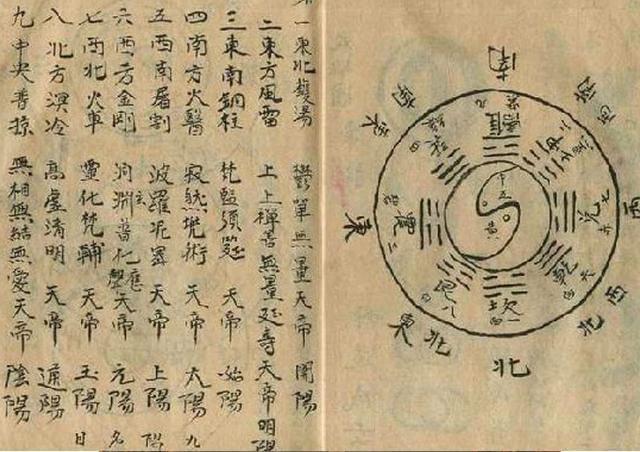 一東北鑊湯 鬱單無量天帝 開陽
二東方風雷 上上禪善無量延壽天帝 明陽
三東南銅柱 梵監須延 天帝 始陽
四南方火翳 寂然兜術 天帝 太陽 九
五西南屠割 波羅尼蜜 天帝 上陽 陽
六西方金剛 洞淵玄普化應聲 天帝 元陽 名
七西北火車 靈化梵輔 天帝 玉陽 日
八北方溟冷 高虛清明 天帝 通陽
九中央普掠 無相無結無愛天帝 陰陽
南
西南
西
西北
北
東北
東
東南
離 九
兌 七
乾 六
坎 一
艮 八
震 三
中五
黃